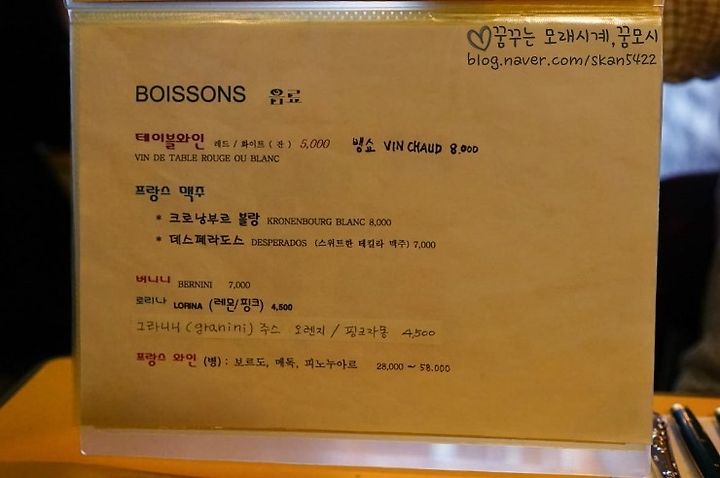 꿈꾸는 모래시계,꿈모시
blog.naver.com/skan5422
BOISSONS 음료
테이블와인 레드 / 화이트 ( 잔 ) 5,000 뱅쇼 VIN CHAUD 8.000
VIN DE TABLE ROUGE OU BLANC
프랑스 맥주
* 크로낭부르 블랑 KRONENBOURG BLANC 8,000
* 데스페라도스 DESPERADOS (스위트한 테킬라 맥주) 7,000
버니니 BERNINI 7,000
로리나 LORINA (레몬/핑크) 4,500
그라니니 (granini) 주스 오렌지 / 핑크자몽 4,500
프랑스 와인 (병) : 보르도, 메독, 피노누아르 28,000 ~ 58.000